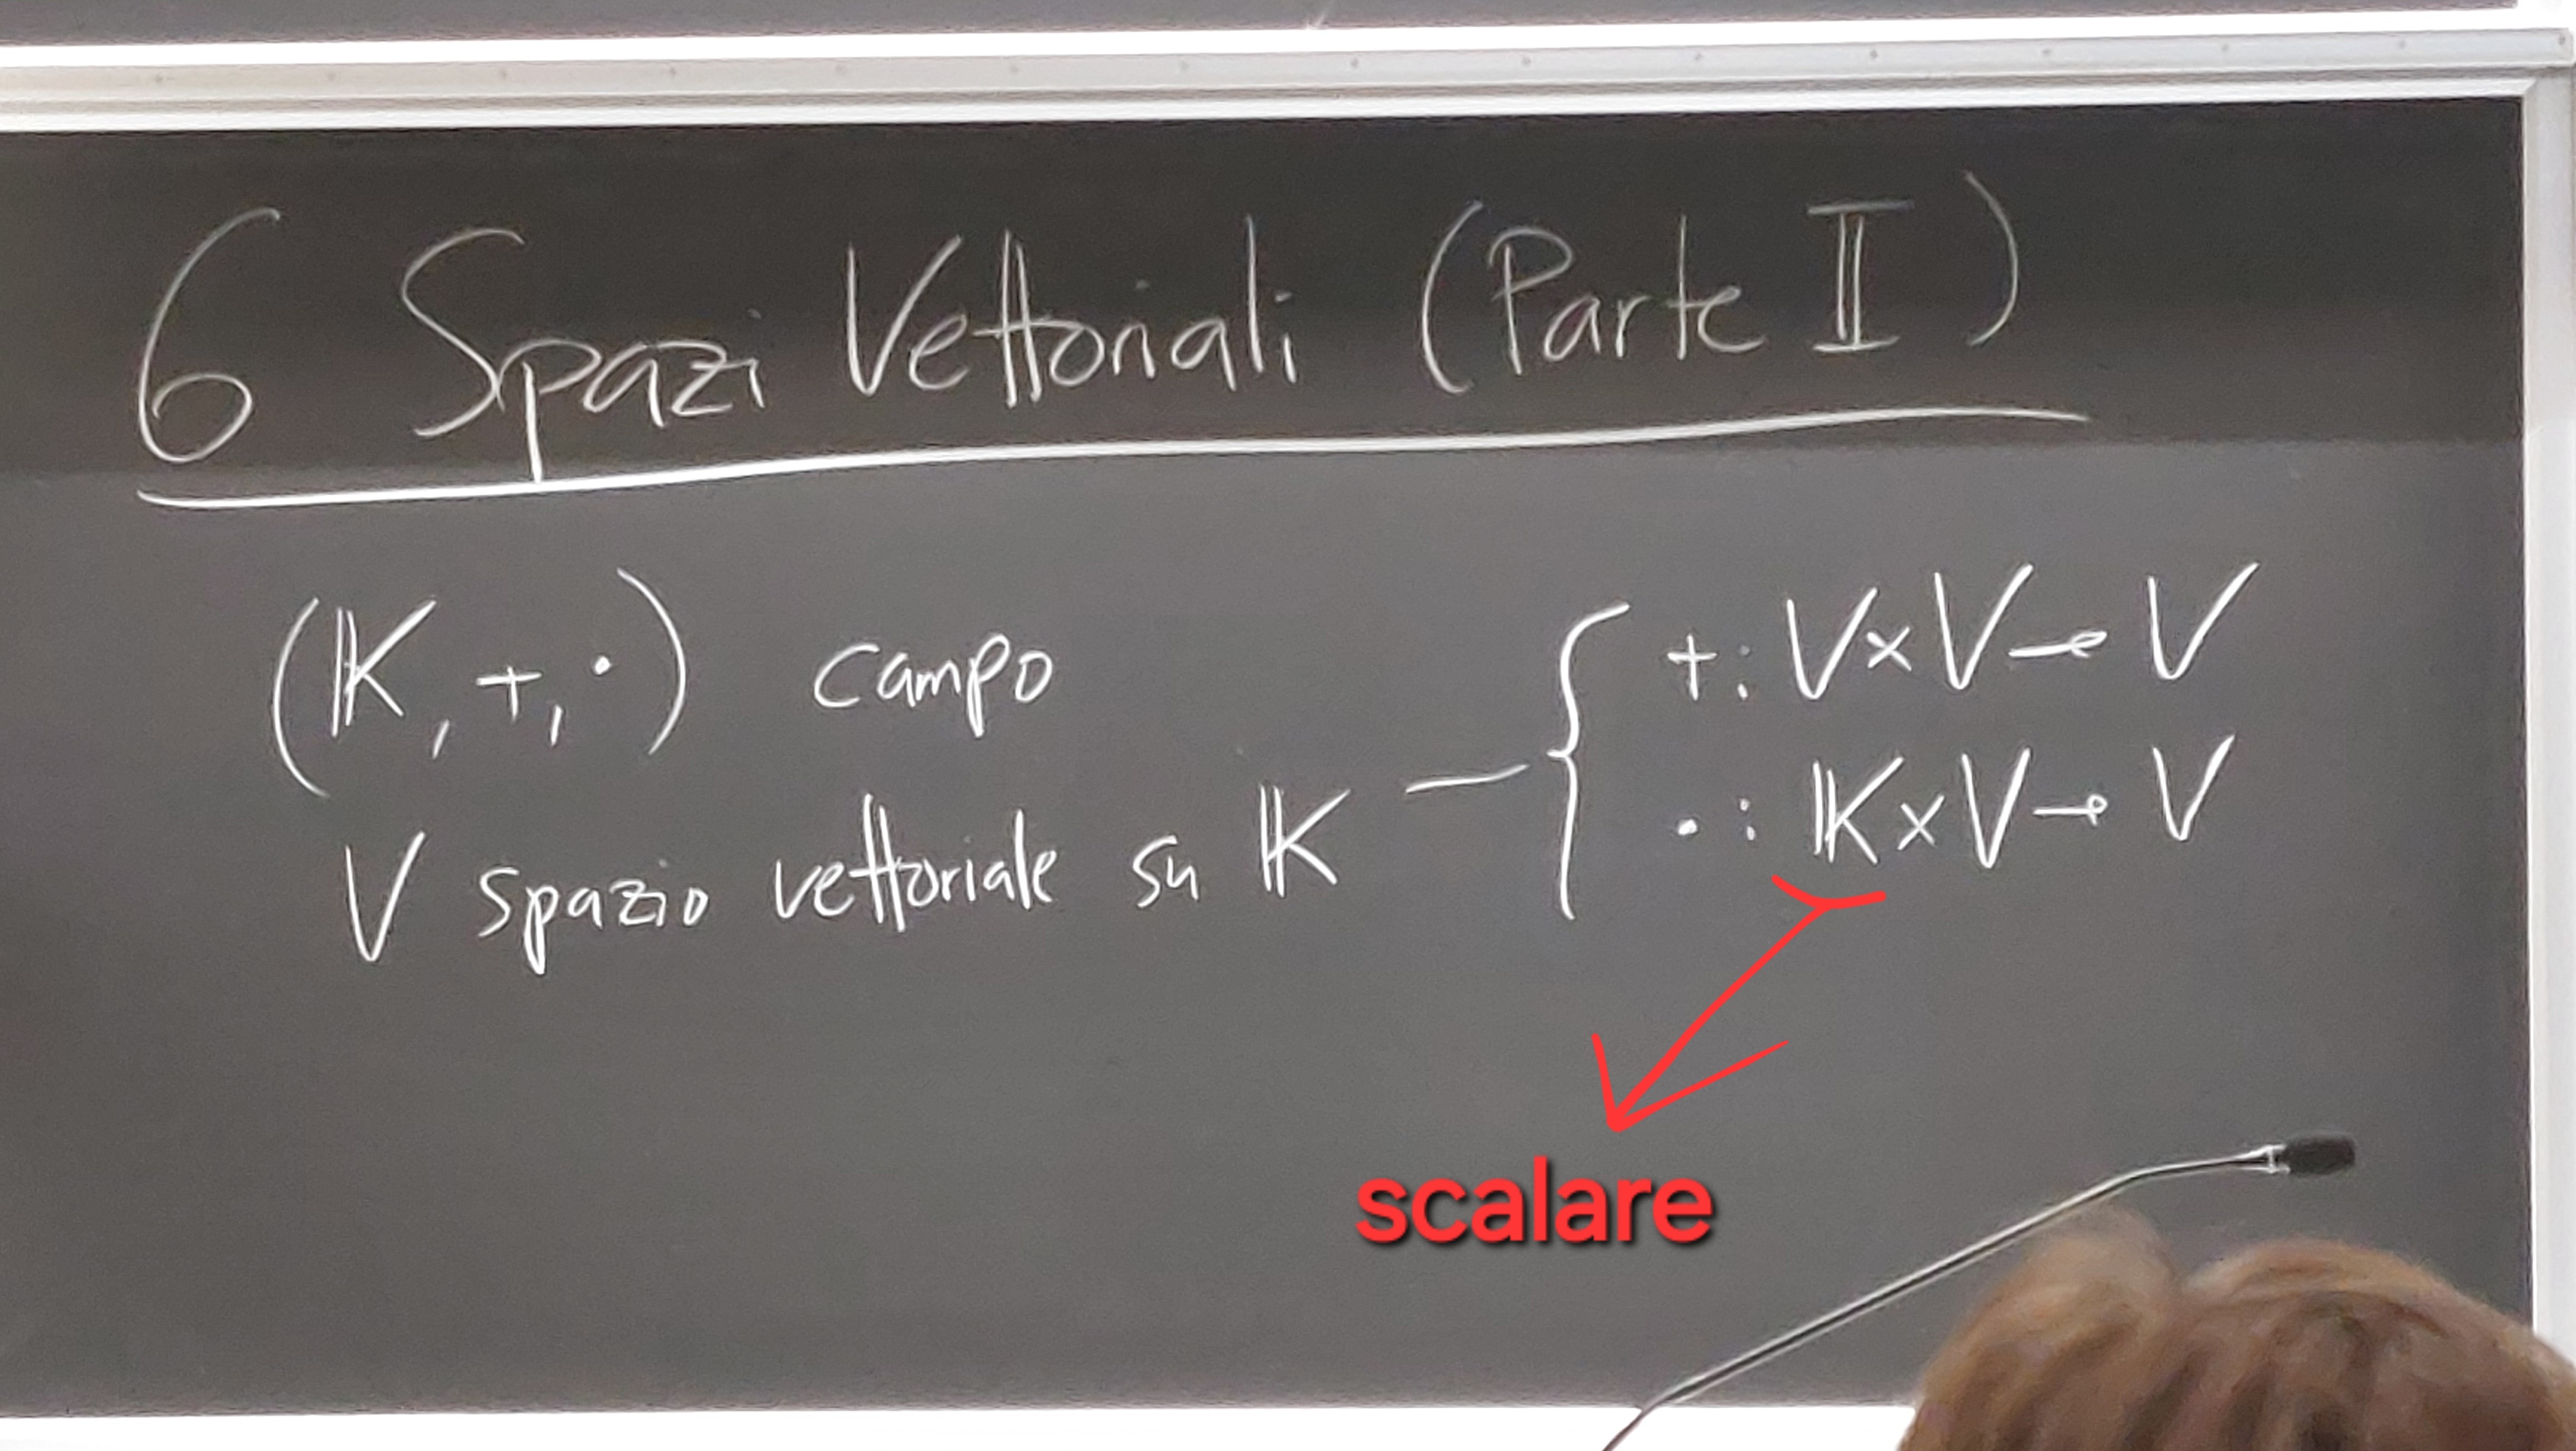 6 Spazi Vettoriali (Parte II)
(𝕂, +, ·) campo
+: V×V→V
V spazio vettoriale su 𝕂 — {
·: 𝕂×V→V
scalare